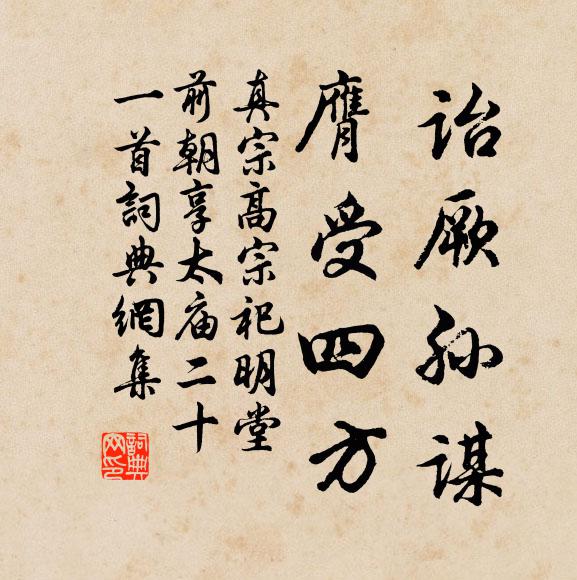 诒厥孙谋
膺受四方
真宗高宗祀明堂
前朝享太庙二十
一首詞典網集
詞典
网印